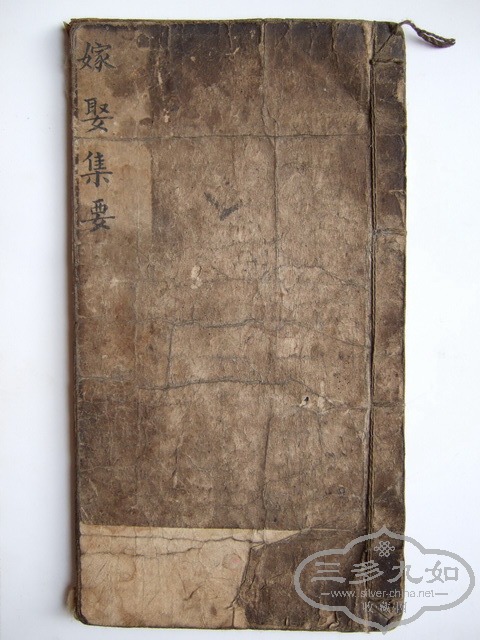 嫁娶集要
三多九如
www.silver-china.net
收藏网